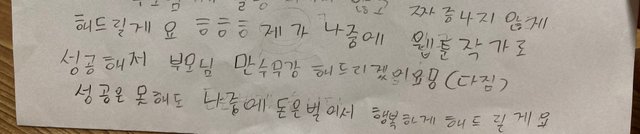 않고 짜증나지 않게
해드릴게요 ㅎㅎㅎ 제가 나중에 웹툰작가로
성공해저 부모님 만수무강 해드리겠어요 (다짐)
성공은 못해도 나중에 돈은벌어서 행복하게 해드릴게요